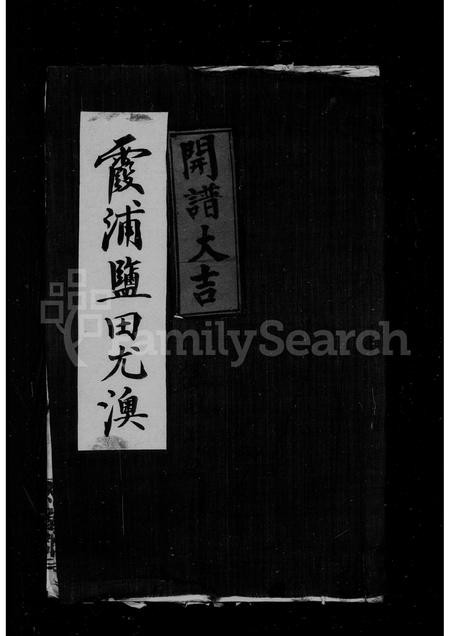 開譜大吉
霞浦鹽田尤澳
FamilySearch